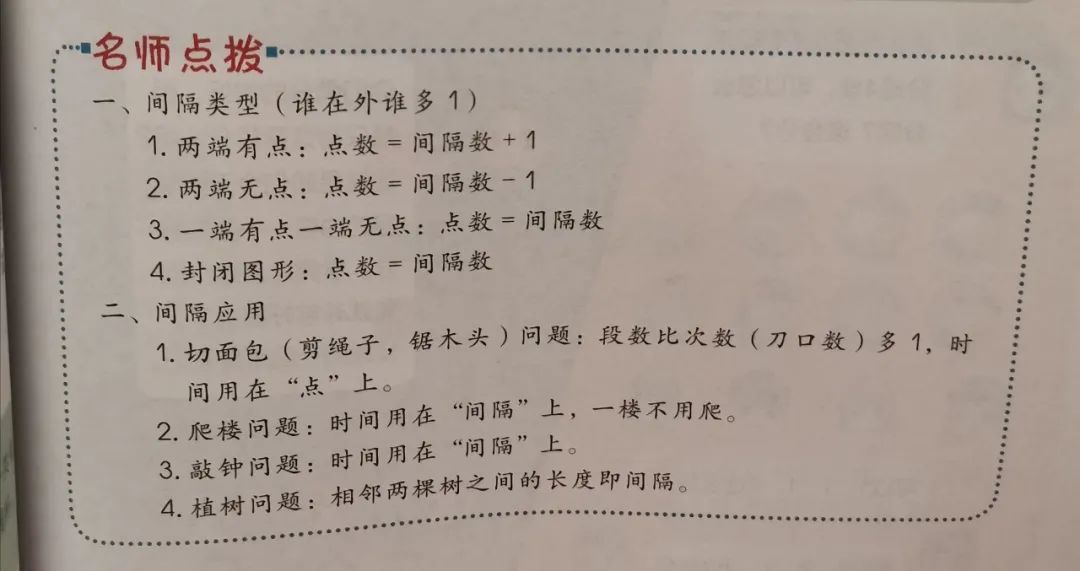 名师点拨
一、间隔类型（谁在外谁多1）
1. 两端有点：点数=间隔数+1
2. 两端无点：点数=间隔数-1
3. 一端有点一端无点：点数=间隔数
4. 封闭图形：点数=间隔数
二、间隔应用
1. 切面包（剪绳子，锯木头）问题：段数比次数（刀口数）多1，时
间用在“点”上。
2. 爬楼问题：时间用在“间隔”上，一楼不用爬。
3. 敲钟问题：时间用在“间隔”上。
4. 植树问题：相邻两棵树之间的长度即间隔。